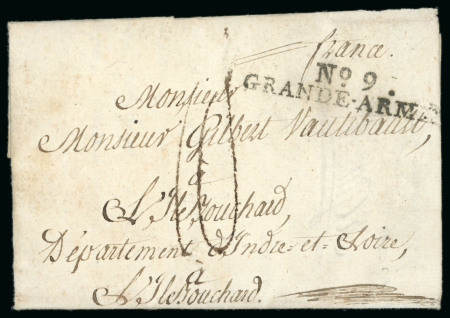 france.
No 9.
GRANDE-ARMÉE
Monsieur
Monsieur Gilbert Vautibault,
à
L'Ile Bouchard,
Département d'Indre-et-Loire,
à
L'Ile Bouchard.